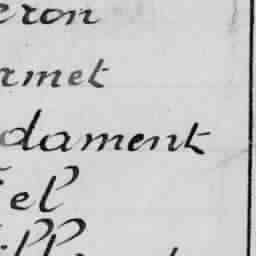 eron
rmet
dament
el